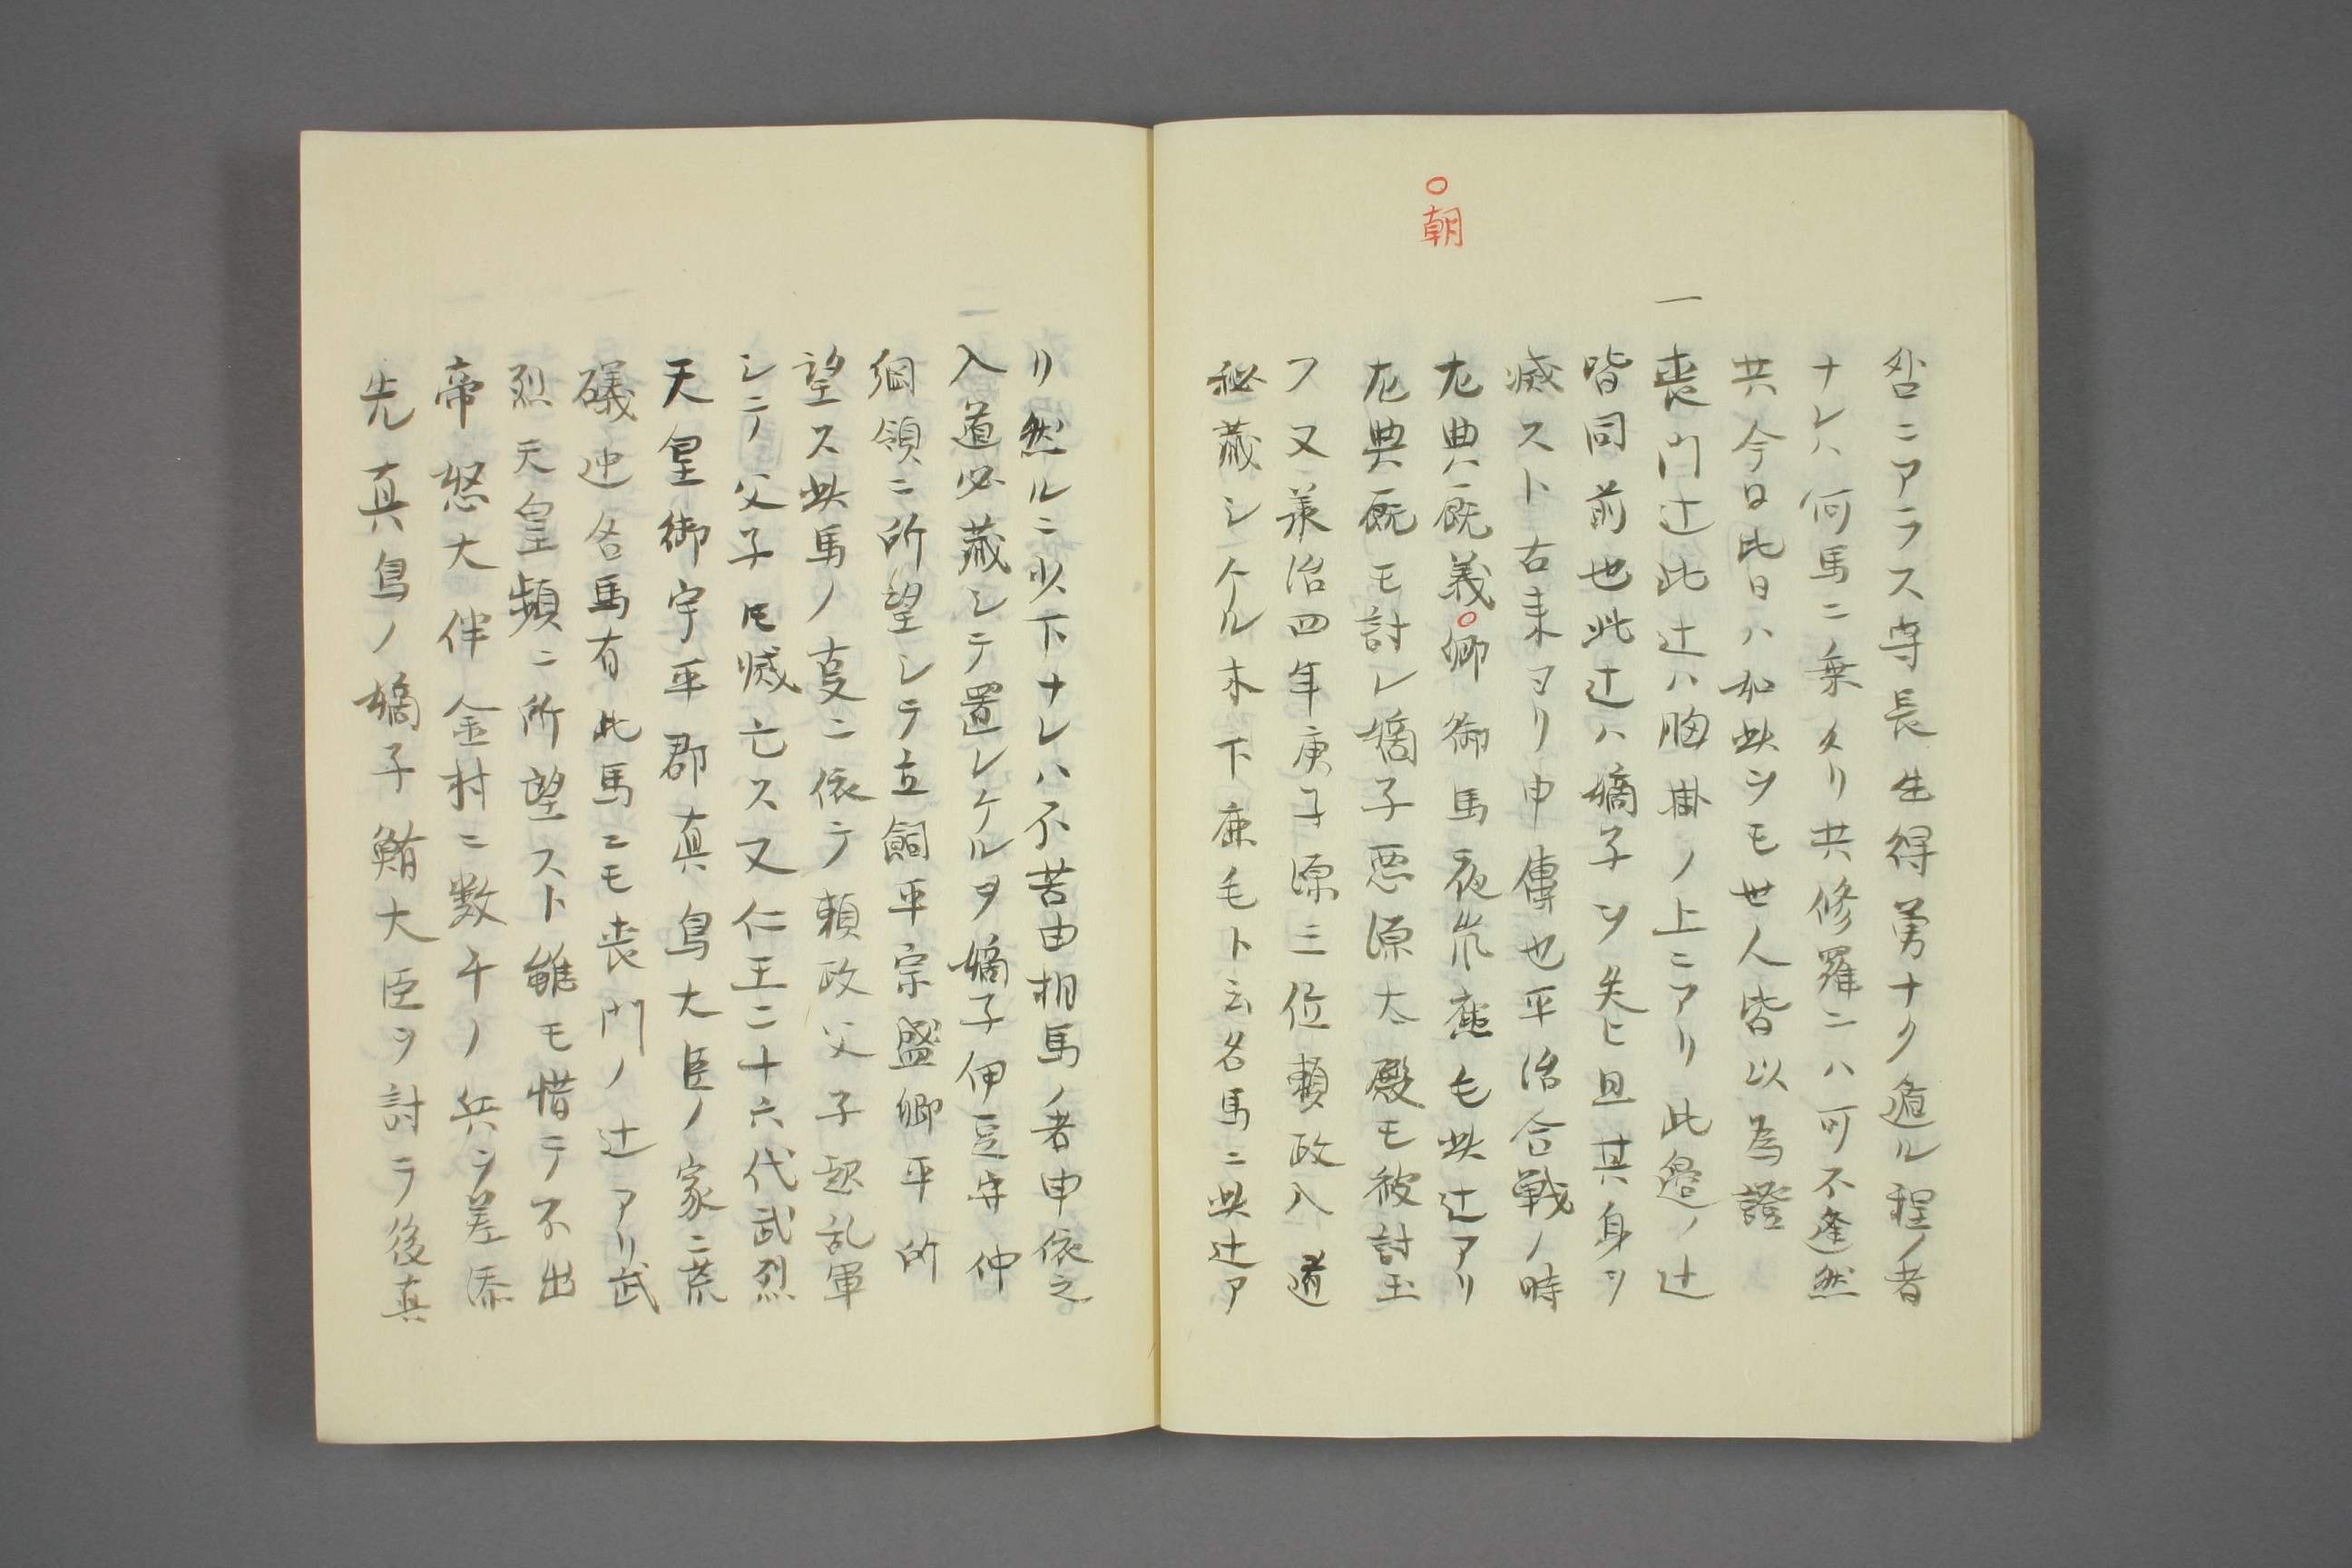 咎ニアラス寺長生得勇ナク遁ル程ノ者
ナレハ何馬ニノ乗タリ共修羅ニハ可不逢然
共今日比日ハ如此ンモ世人皆以為證
一 喪門辻此辻ハ胸掛ノ上ニアリ此邉ノ辻
皆同前也此辻ハ嫡子ヲ失ヒ且其身ヲ
滅スト古来ヨリ申傳也平治合戦ノ時
左典厩義○卿御馬夜鹿毛此辻アリ
○朝
左典厩モ討レ嫡子悪源太殿モ被討玉
フ又承治四年庚子源三位頼政入道
秘蔵シケル木下鹿毛ト云名馬ニ此辻ア
リ然ルニ以下ナレハ不苦由相馬ノ者申依之
入道必蔵シテ置レケルヲ嫡子伊豆守仲
綱領ニ所望シテ立飼平宗盛卿平所
望ス此馬ノ支ニ依テ頼政父子起乱軍
シテ父子氏滅亡ス又仁王二十六代武烈
天皇御宇平郡真鳥大臣ノ家ニ荒
礒迚名馬有此馬ニモ喪門ノ辻アリ武
烈天皇頻ニ所望スト雖モ惜テ不出
帝怒大伴金村ニ数千ノ兵ヲ差添
先真鳥ノ嫡子鮪大臣ヲ討ラ後真